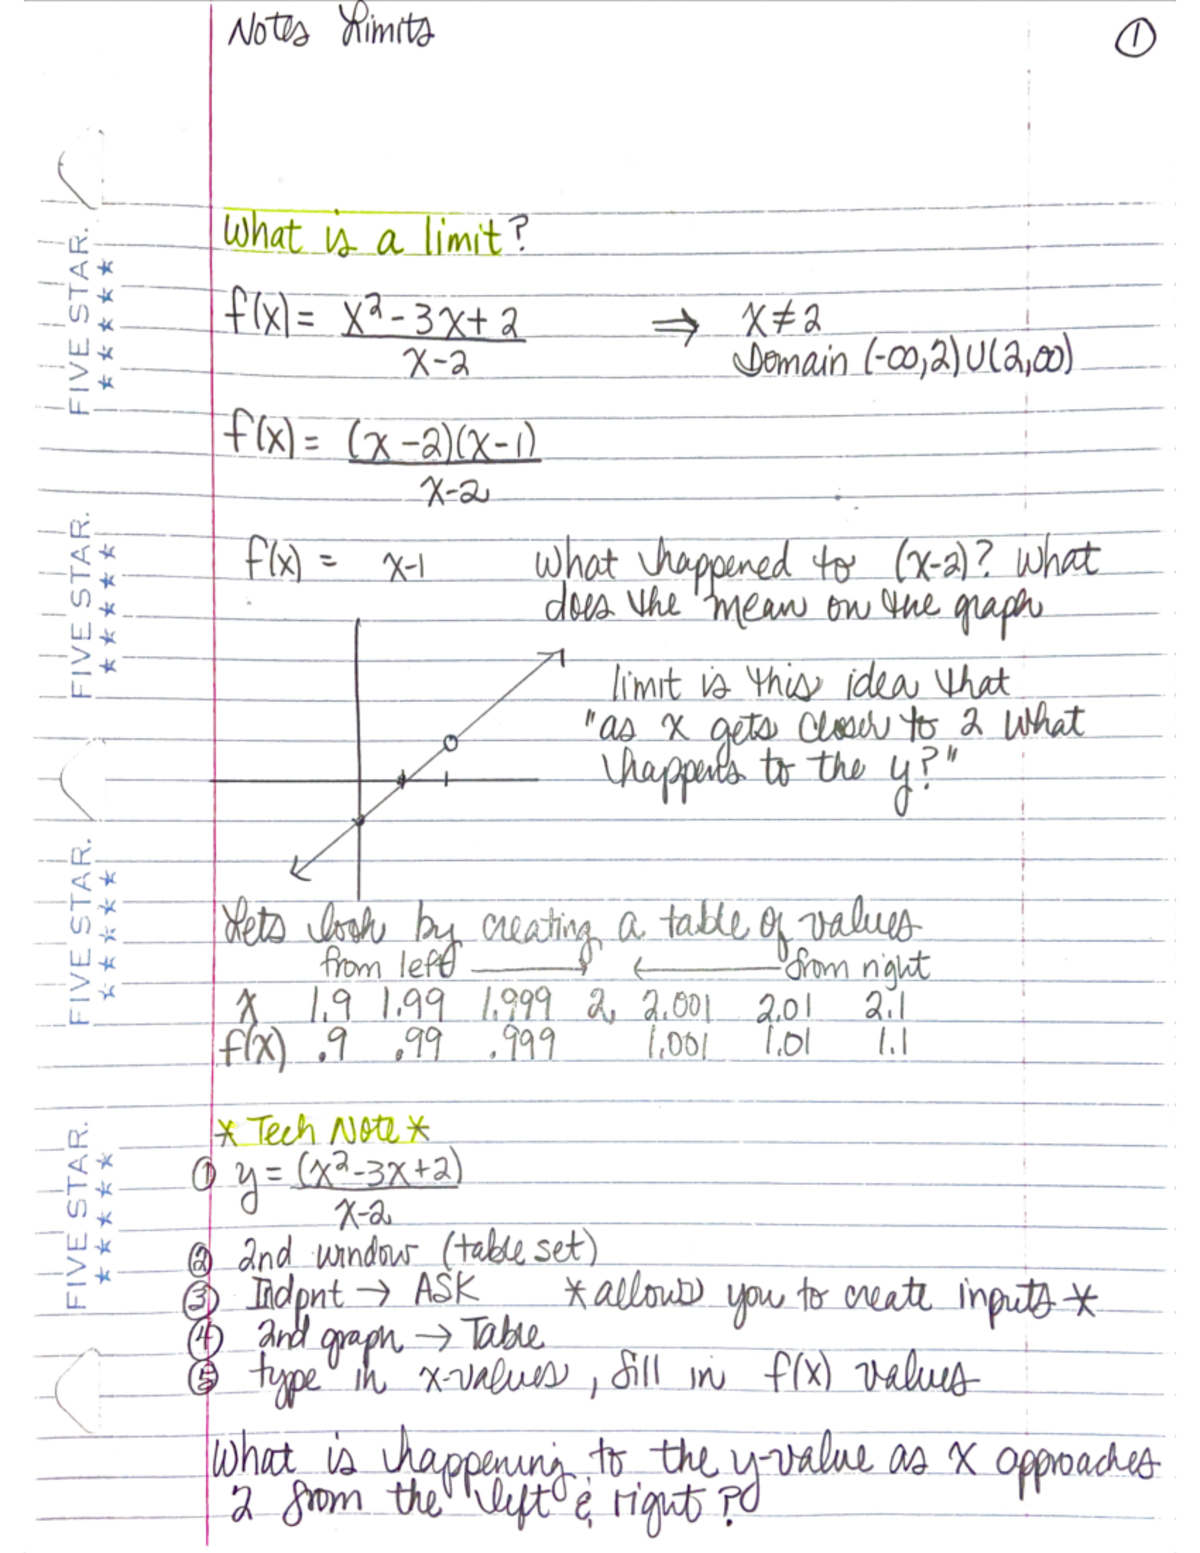 Notes Limits
①
What is a limit?
f(x) = x²-3x+2 / x-2 ⇒ x≠2
Domain (-∞,2)U(2,∞)
f(x) = (x-2)(x-1) / x-2
f(x) = x-1 What happened to (x-2)? What
does the mean on the graph
limit is this idea that
"as x gets closer to 2 what
happens to the y?"
Lets look by creating a table of values
from left → ← from right
x 1.9 1.99 1.999 2 2.001 2.01 2.1
f(x) .9 .99 .999 1.001 1.01 1.1
* Tech Note *
① y = (x²-3x+2) / x-2
② 2nd window (table set)
③ Indpnt → ASK *allows you to create inputs *
④ 2nd graph → Table
⑤ type in x-values, fill in f(x) values
What is happening to the y-value as x approaches
2 from the left & right?
FIVE STAR.
FIVE STAR.
FIVE STAR.
FIVE STAR.